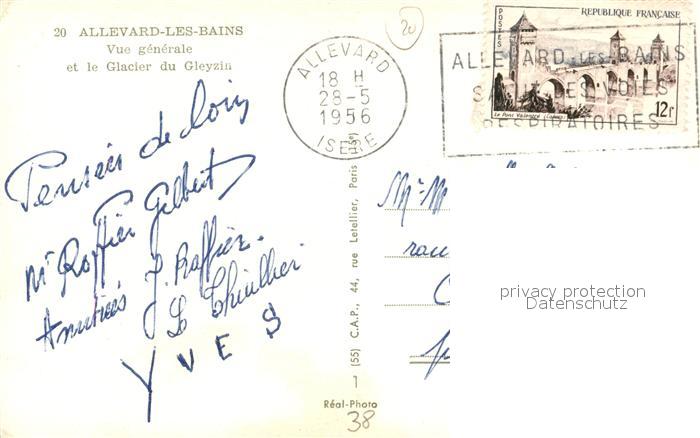 20 ALLEVARD-LES-BAINS
Vue générale
et le Glacier du Gleyzin
20
ALLEVARD
18 H
28-5
1956
ISERE
POSTES
REPUBLIQUE FRANÇAISE
Le Pont Valentré (Cahors)
12F
ALLEVARD LES BAINS
S DES VOIES
RESPIRATOIRES
Pensées de loin
Mr Gilbert
Amitiés J.
YVES
(55) C.A.P., 44, rue Letellier, Paris
1
Réal-Photo
38
privacy protection
Datenschutz